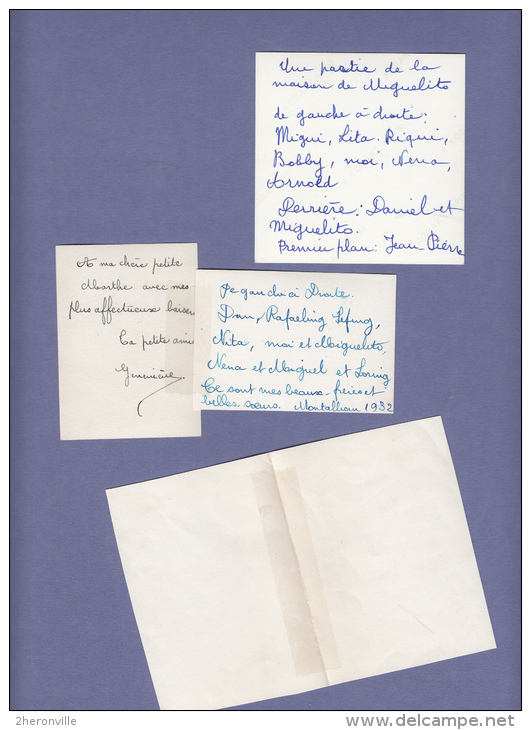 Une partie de la
maison de Miguelito
de gauche à droite:
Migui, Lita. Riqui,
Bobby, moi, Nena,
Arnold
Derrière: Daniel et
Miguelito.
Premier plan: Jean Pierre
A ma chère petite
Marthe avec mes
plus affectueux baisers
Ta petite amie
Geneviève
De gauche à Droite.
Dom, Rafaeling
Nita, moi et Miguelito,
Nena et Miguel et Loring
Ce sont mes beaux-frères et
belles sœurs. 1932
2heronville
delcampe.net